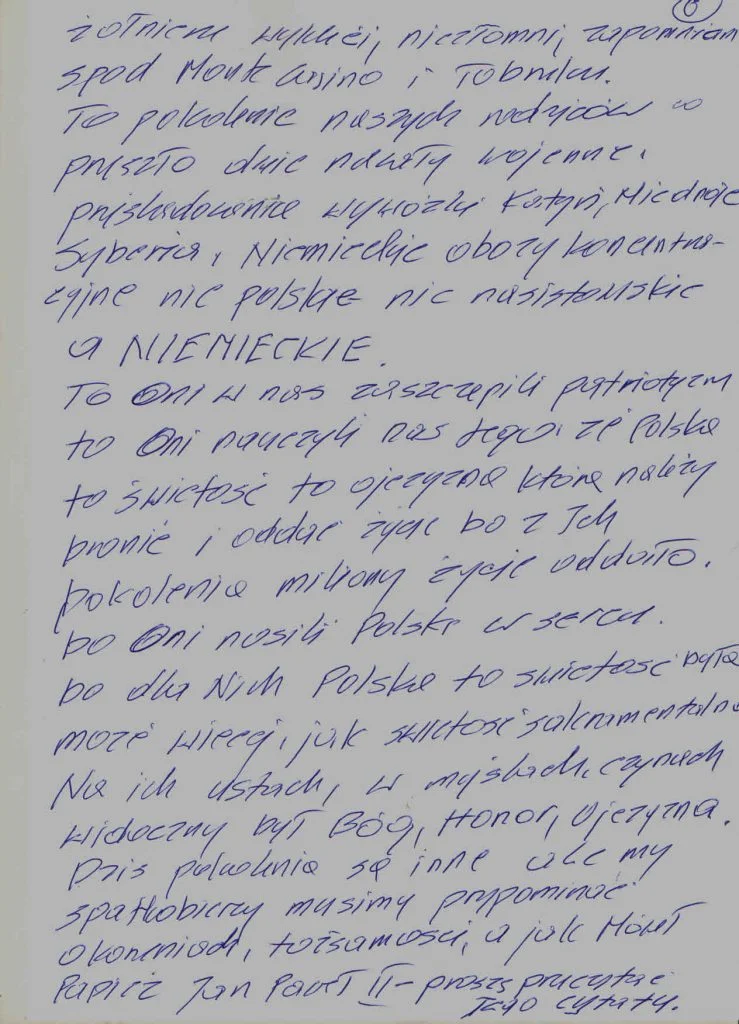 6
żołnierze wyklęci, niezłomni, zapomniani
spod Monte Cassino i Tobruku.
To pokolenie naszych rodziców co
przeszło dwie nawały wojenne.
prześladowania wywózki Katyń, Miednoje
Syberia, Niemieckie obozy koncentra-
cyjne nie polskie nie nasistowskie
a NIEMIECKIE.
To Oni w nas zaszczepili patriotyzm
to Oni nauczyli nas tego że Polska
to świętość to ojczyzna którą należy
bronić i oddać życie bo z Ich
pokolenia miliony życie oddało.
bo Oni nosili Polskę w sercu.
bo dla Nich Polska to świętość była
może więcej, jak świętość sakramentalna
Na ich ustach, w myślach, czynach
widoczny był Bóg, Honor, Ojczyzna.
Dziś pokolenia są inne ale my
spatkobiercy musimy przypominać
o korzeniach, tożsamości, a jak Mówił
Papież Jan Paweł II - proszę przeczytać
Jego cytaty.